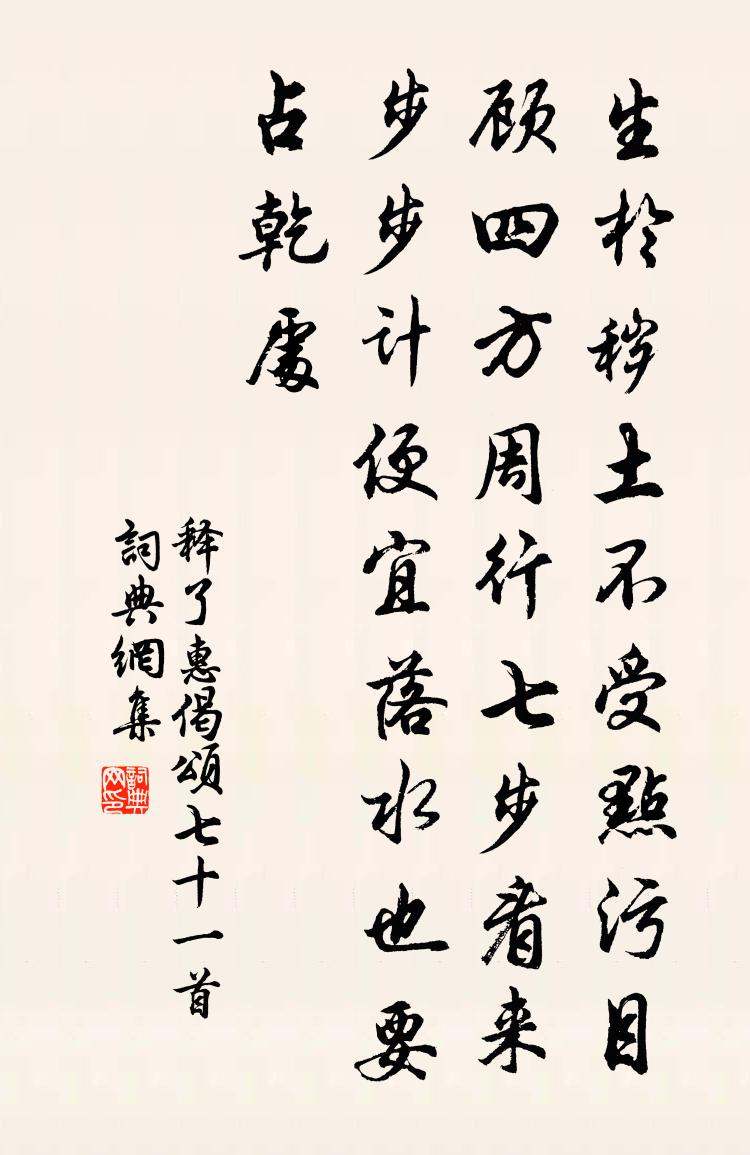 生於穢土不受點污目
顾四方周行七步看来
步步计便宜落水也要
占乾處
释了惠偈頌七十一首
詞典網集
詞典网印